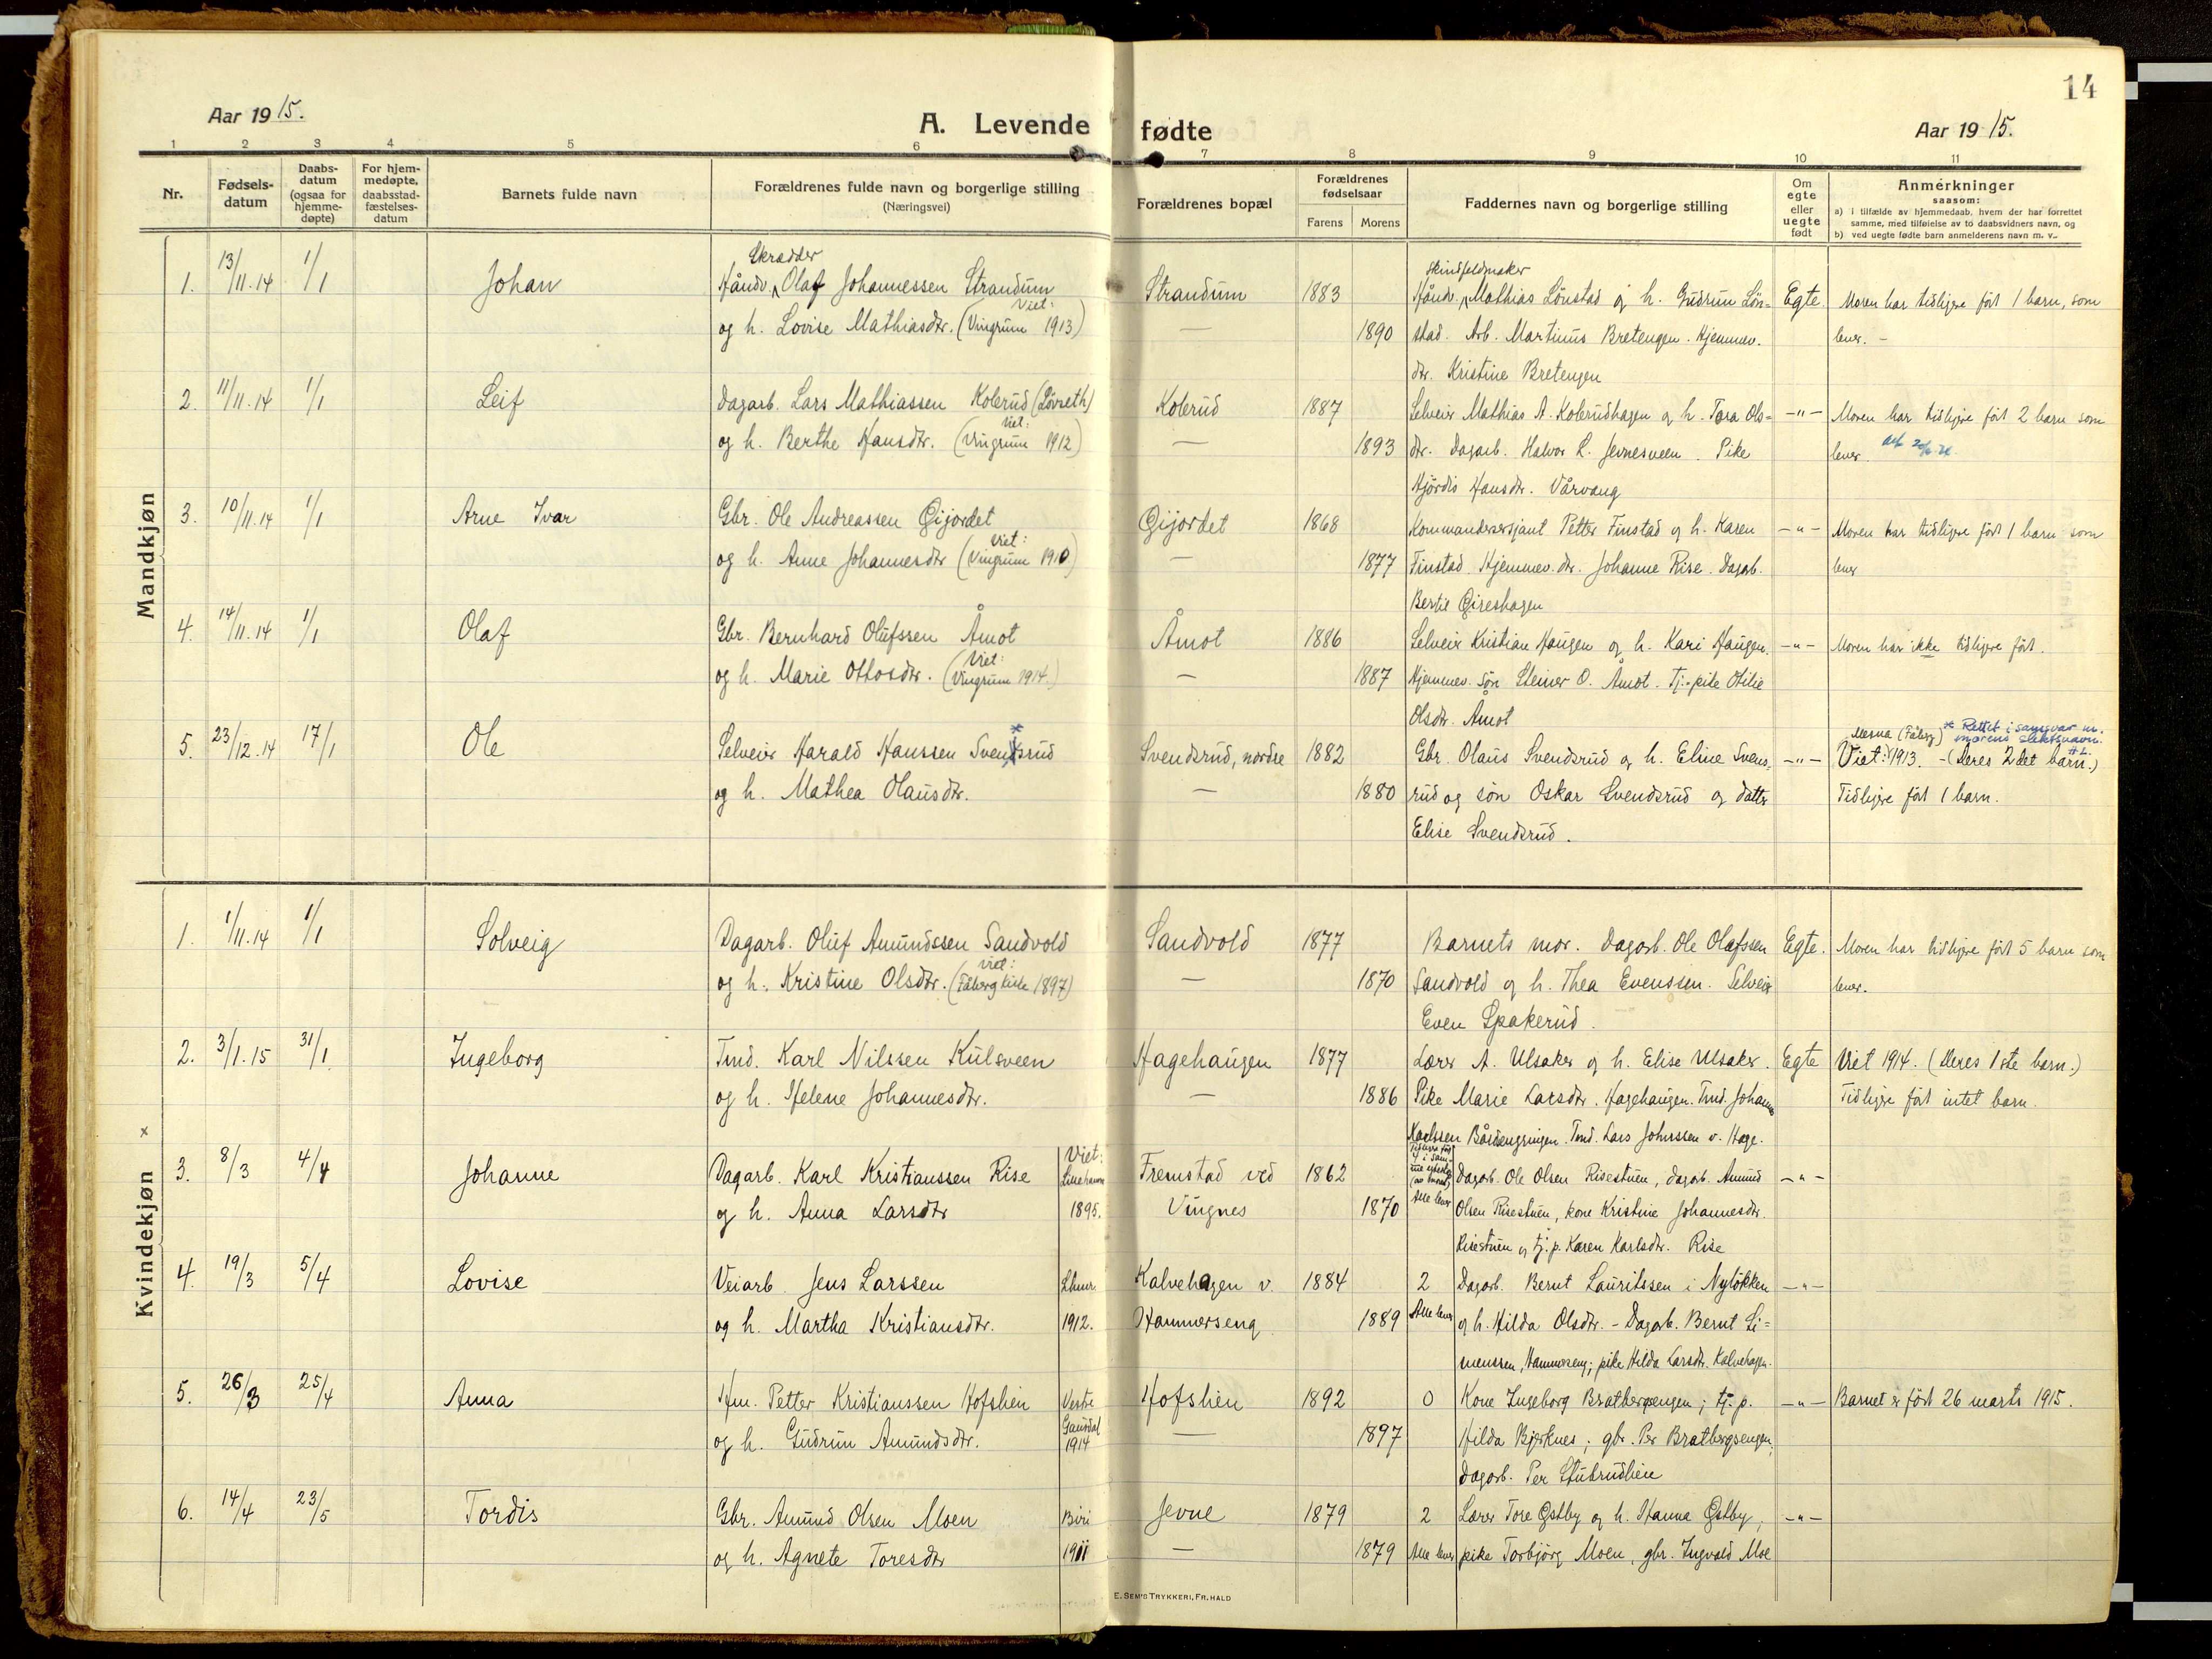 14
Aar 1915.
A. Levende fødte
Aar 1915.
1 2 3 4 5 6 7 8 9 10 11
Nr.
Fødsels-
datum
Daabs-
datum
(ogsaa for
hjemme-
døpte)
For hjem-
medøpte,
daabsstad-
fæstelses-
datum
Barnets fulde navn
Forældrenes fulde navn og borgerlige stilling
(Næringsvei)
Forældrenes bopæl
Forældrenes
fødselsaar
Farens Morens
Faddernes navn og borgerlige stilling
Om
egte
eller
uegte
født
Anmerkninger
saasom:
a) i tilfælde av hjemmedaab, hvem der har forrettet
samme, med tilføielse av to daabsvidners navn, og
b) ved uegte fødte barn anmelderens navn m. v.
Mandkjøn
Skrædder Skindfeldmaker
1. 13/11.14 1/1 Johan Håndv. Olaf Johannessen Strandum Strandum 1883 Håndv. Mathias Lönstad og h. Gudrun Lön= Egte. Moren har tidligere föt 1 barn, som
og h. Lovise Mathiasdtr. (Viet: Vingrum 1913) — 1890 stad. Arb. Martinus Bretengen. Hjemmev. lever. -
dtr. Kristine Bretengen
2. 11/11.14 1/1 Leif Dagarb. Lars Mathiassen Kolerud (Lövseth) Kolerud 1887 Selveier Mathias A. Kolerudhagen og h. Tora Ols= -"- Moren har tidligere föt 2 barn som
og h. Berthe Hansdtr. (Viet: Vingrum 1912) — 1893 dtr. Dagarb. Halvor L. Jevnesveen. Pike lever.
Hjördis Hansdtr. Vårvang
3. 10/11.14 1/1 Arne Ivar Gbr. Ole Andreassen Gijordet Gijordet 1868 Kommandersersjant Petter Finstad og h. Karen -"- Moren har tidligere föt 1 barn som
og h. Anne Johannesdtr (Viet: Vingrum 1910) — 1877 Finstad Hjemmev. dtr. Johanne Rise. Dagarb. lever
Bertil Gireshagen
4. 14/11.14 1/1 Olaf Gbr. Bernhard Olufssen Åmot Åmot 1886 Selveier Kristian Haugen og h. Kari Haugen. -"- Moren har ikke tidligere föt.
og h. Marie Ottosdtr. (Viet: Vingrum 1914.) — 1887 Hjemmev. sön Steiner O. Åmot. Tj.-pike Otilie
Olsdtr. Åmot
Mesna (Fåberg) * Rettet i samsvar m.
morens slektsnavn.
5. 23/12.14 17/1 Ole Selveier Harald Hanssen Svendsrud * Svendsrud, nordre 1882 Gbr. Olaus Svendsrud og h. Eline Svens= -"- Viet: 1913. - (Deres 2det barn.)
og h. Mathea Olausdtr. — 1880 rud og sön Oskar Svendsrud og datter Tidligere föt 1 barn.
Elise Svendsrud.
Kvindekjøn ×
1. 1/11.14 1/1 Solveig Dagarb. Oluf Amundssen Sandvold Sandvold 1877 Barnets mor. Dagarb. Ole Olafssen Egte. Moren har tidligere föt 5 barn som
og h. Kristine Olsdtr. (Viet: Fåberg kirke 1897) — 1870 Sandvold og h. Thea Evenssen. Selveier lever.
Even Spakerud.
2. 3/1.15 31/1 Ingeborg Tmd. Karl Nilssen Kulsveen Hagehaugen 1877 Lærer A. Ulsaker og h. Elise Ulsaker. Egte Viet 1914. (Deres 1ste barn.)
og h. Helene Johannesdtr. — 1886 Pike Marie Larsdtr. Hagehaugen. Tmd. Johannes Tidligere föt intet barn.
Karlssen Bårdsengringen. Tmd. Lars Johnssen v. Hage.
3. 8/3 4/4 Johanne Dagarb. Karl Kristianssen Rise Viet: Lillehammer Fremstad ved 1862 Dagarb. Ole Olsen Risestuen, dagarb. Amund -"-
og h. Anna Larsdtr 1895. Vingnes 1870 Alle lever Olsen Risestuen, kone Kristine Johannesdtr.
Risestuen og tj. p. Karen Karlsdtr. Rise
4. 19/3 5/4 Lovise Veiarb. Jens Larssen Lhmr. Kalvehagen v. 1884 2 Dagarb. Bernt Lauritssen i Nylökken -"-
og h. Martha Kristiansdtr. 1912. Hammerseng 1889 Alle lever og h. Hilda Olsdtr. - Dagarb. Bernt Si=
menssen, Hammerseng; pike Hilda Larsdtr. Kalvehagen.
5. 26/3 25/4 Anna Hm. Petter Kristianssen Hofslien Vestre Hofslien 1892 0 Kone Ingeborg Bratbergsengen; tj. p. -"- Barnet er föt 26 marts 1915.
og h. Gudrun Amundsdtr. Gausdal 1914 — 1897 Hilda Bjerknes; gbr. Per Bratbergsengen;
Dagarb. Per Stubrudlien
6. 14/4 23/5 Tordis Gbr. Amund Olsen Moen Biri Jevne 1879 2 Lærer Tore Östby og h. Hanna Östby; -"-
og h. Agnete Toresdtr 1911 — 1879 Alle lever pike Torbjörg Moen, gbr. Ingvald Moe
E. SEM'S TRYKKERI, FR. HALD